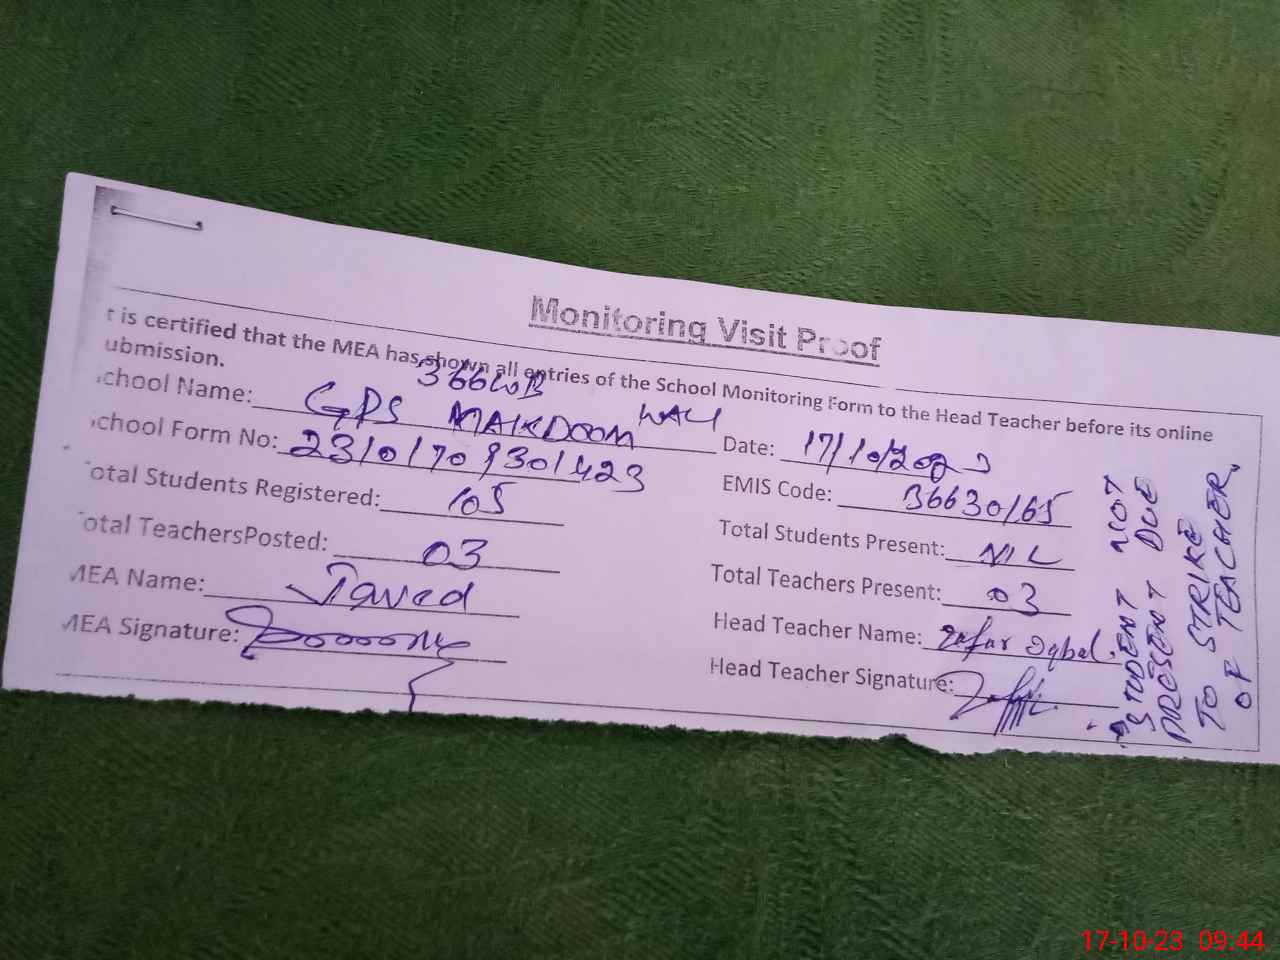 Monitoring Visit Proof
t is certified that the MEA has shown all entries of the School Monitoring Form to the Head Teacher before its online
ubmission.
chool Name: GPS MAKDOOM WALI
Date: 17/10/2023
chool Form No: 23101709301423
EMIS Code: 36630165
otal Students Registered: 105
Total Students Present: NIL
otal TeachersPosted: 03
Total Teachers Present: 03
MEA Name: Javed
Head Teacher Name: Zafar Iqbal.
MEA Signature:
Head Teacher Signature:
STUDENT NOT
PRESENT DUE
TO STRIKE
OF TEACHER,
17-10-23 09:44